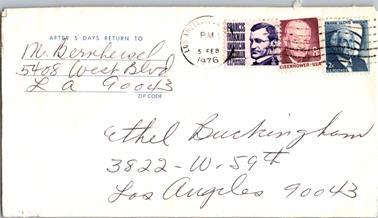 AFTER 5 DAYS RETURN TO
M. Bernheisel
5408 West Blvd
L A 90043
ZIP CODE
LOS
PM
5 FEB
1976
FRANCIS
EISENHOWER·USA
FRANK LLOYD
2¢
Ethel Buckingham
3822-W-59th
Los Angeles 90043